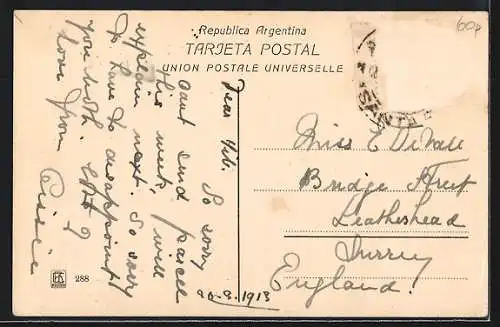 Republica Argentina
TARJETA POSTAL
UNION POSTALE UNIVERSELLE
60p
Dear
So sorry
cant send parcel
this week, will
explain next. So sorry
to have to disappoint
you both.
love from
Cissie
20.8.1913
Miss E
Bridge Street
Leatherhead
Surrey
England.
288